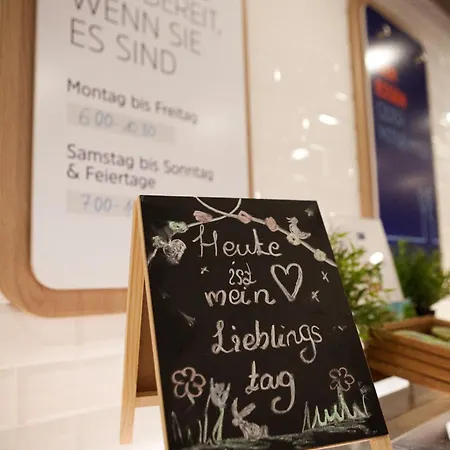 BEREIT,
WENN SIE
ES SIND
Montag bis Freitag
6:00-10:30
Samstag bis Sonntag
& Feiertage
7:00-1
Heute
ist
mein
Lieblings
tag